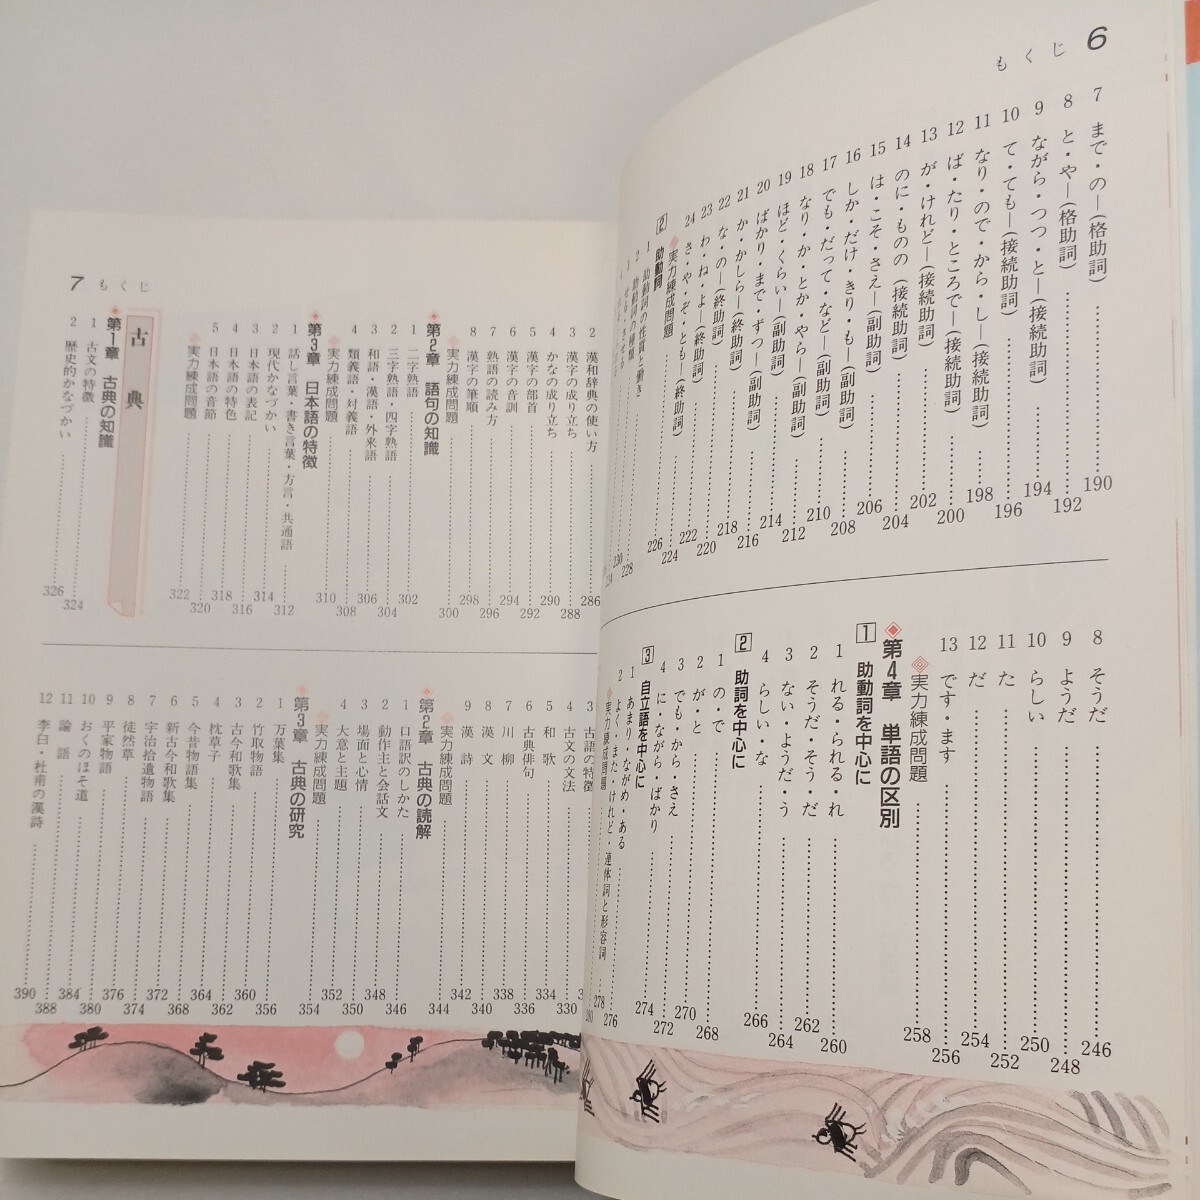 もくじ 6
7 まで・の―(格助詞) 190
8 と・や―(格助詞) 192
9 ながら・つつ・と―(接続助詞) 194
10 て・ても―(接続助詞) 196
11 なり・ので・から・し―(接続助詞) 198
12 ば・たり・ところで―(接続助詞) 200
13 が・けれど―(接続助詞) 202
14 のに・ものの (接続助詞) 204
15 は・こそ・さえ―(副助詞) 206
16 しか・だけ・きり・も―(副助詞) 208
17 でも・だって・など―(副助詞) 210
18 なり・か・とか・やら―(副助詞) 212
19 ほど・くらい―(副助詞) 214
20 ばかり・まで・ずつ―(副助詞) 216
21 か・かしら―(終助詞) 218
22 な・の―(終助詞) 220
23 わ・ね・よ―(終助詞) 222
24 さ・や・ぞ・とも―(終助詞) 224
実力練成問題 226
2 助動詞
1 助動詞の性質と働き 228
2 助動詞の種類 230
8 そうだ 246
9 ようだ 248
10 らしい 250
11 た 252
12 だ 254
13 です・ます 256
実力練成問題 258
第4章 単語の区別
1 助動詞を中心に
1 れる・られる・れ 260
2 そうだ・そう・だ 262
3 ない・ようだ・う 264
4 らしい・な 266
2 助詞を中心に
1 の・で 268
2 が・と 270
3 でも・から・さえ 272
4 に・ながら・ばかり 274
3 自立語を中心に
1 あまり・ながめ・ある 276
2 よく・また・けれど・連体詞と形容詞 278
実力練成問題 280
7 もくじ
2 漢和辞典の使い方 286
3 漢字の成り立ち 288
4 かなの成り立ち 290
5 漢字の部首 292
6 漢字の音訓 294
7 熟語の読み方 296
8 漢字の筆順 298
実力練成問題 300
第2章 語句の知識
1 二字熟語 302
2 三字熟語・四字熟語 304
3 和語・漢語・外来語 306
4 類義語・対義語 308
実力練成問題 310
第3章 日本語の特徴
1 話し言葉・書き言葉・方言・共通語 312
2 現代かなづかい 314
3 日本語の表記 316
4 日本語の特色 318
5 日本語の音節 320
実力練成問題 322
古典
第1章 古典の知識
1 古文の特徴 324
2 歴史的かなづかい 326
3 古語の特徴
4 古文の文法 330
5 和歌 334
6 古典俳句 336
7 川柳 338
8 漢文 340
9 漢詩 342
実力練成問題 344
第2章 古典の読解
1 口語訳のしかた 346
2 動作主と会話文 348
3 場面と心情 350
4 大意と主題 352
実力練成問題 354
第3章 古典の研究
1 万葉集 356
2 竹取物語 360
3 古今和歌集 362
4 枕草子 364
5 今昔物語集 368
6 新古今和歌集 372
7 宇治拾遺物語 374
8 徒然草 376
9 平家物語 380
10 おくのほそ道 384
11 論語 388
12 李白・杜甫の漢詩 390